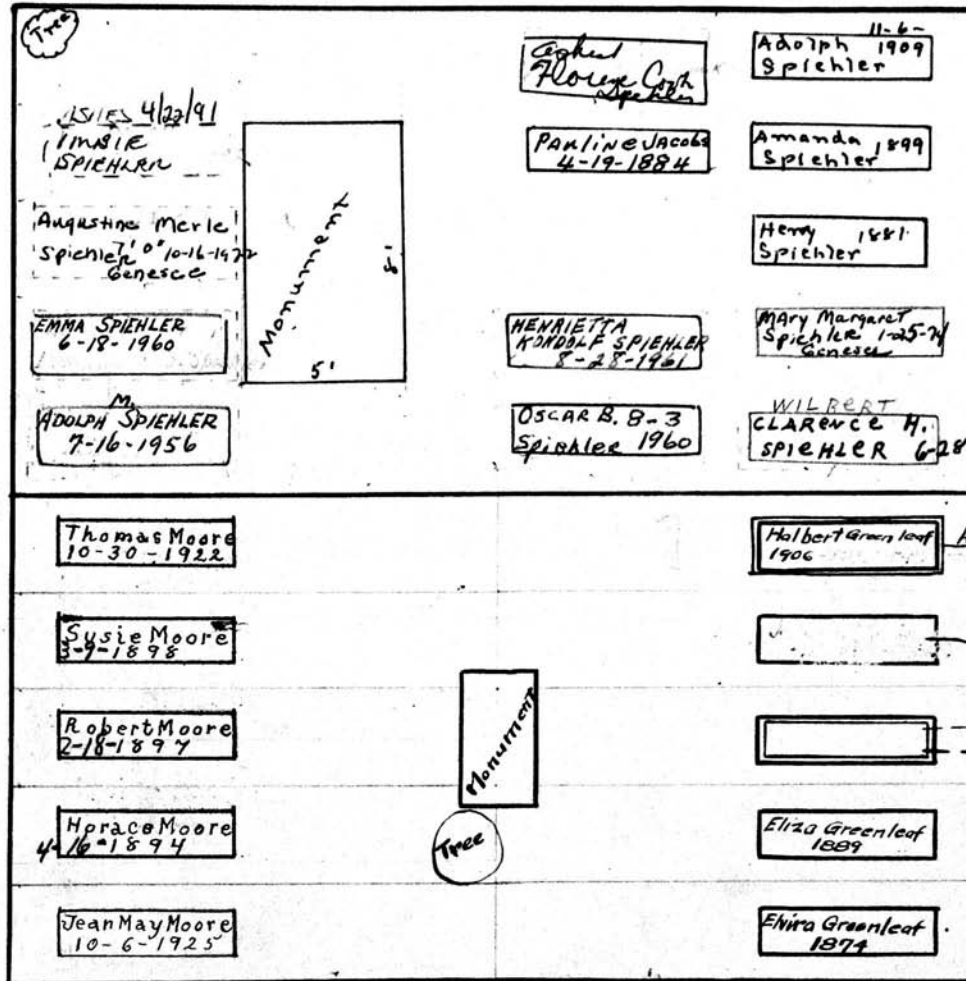 Tree
4/22/91
SPIEHLER
Augustine Merle
Spiehler 7'0" 10-16-1922
Genesee
EMMA SPIEHLER
6-18-1960
M.
ADOLPH SPIEHLER
7-16-1956
Monument
8'
5'
Florence
Spiehler
PAULINE JACOBS
4-19-1884
HENRIETTA
KONDOLF SPIEHLER
8-28-1961
OSCAR B. 8-3
Spiehler 1960
11-6-
Adolph 1909
Spiehler
Amanda 1899
Spiehler
Henry 1881
Spiehler
MAry Margaret
Spiehler 1-25-74
Genesee
WILBERT
CLARENCE H.
SPIEHLER 6-28
Thomas Moore
10-30-1922
Susie Moore
3-9-1898
Robert Moore
2-18-1897
Horace Moore
4-16-1894
Jean May Moore
10-6-1925
Monument
Tree
Halbert Greenleaf
1906
Eliza Greenleaf
1889
Elvira Greenleaf
1874